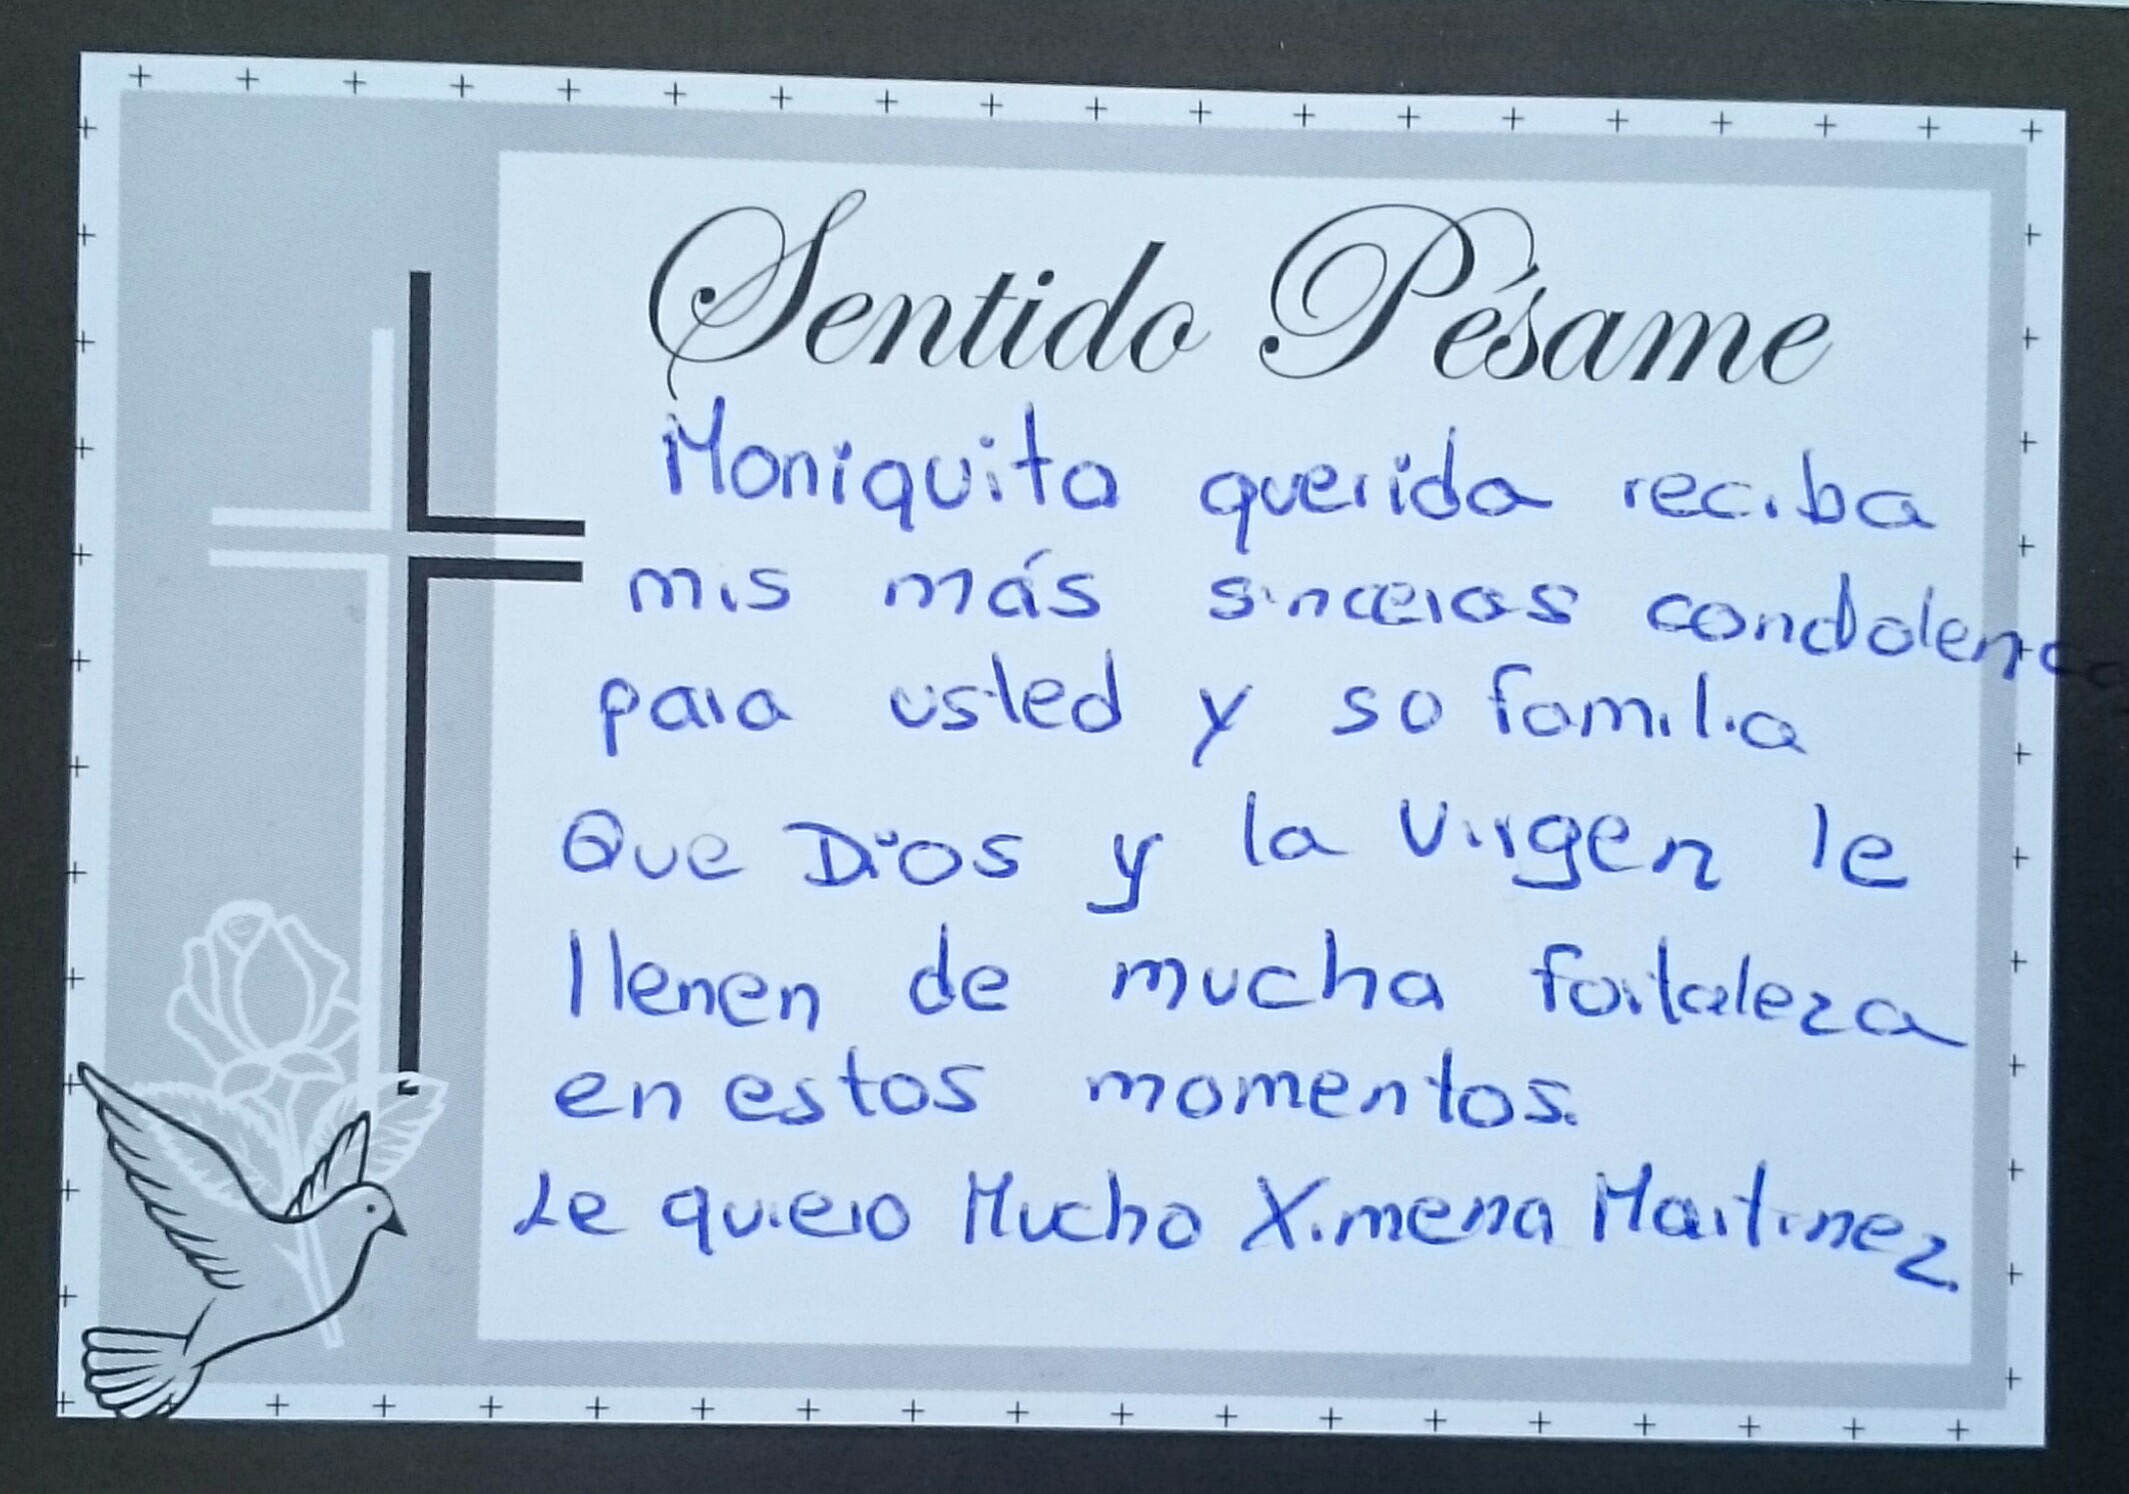 Sentido Pésame
Moniquita querida reciba
mis más sinceras condolencia
para usted y su familia
Que Dios y la Virgen le
llenen de mucha fortaleza
en estos momentos.
Le quiero Mucho Ximena Martinez